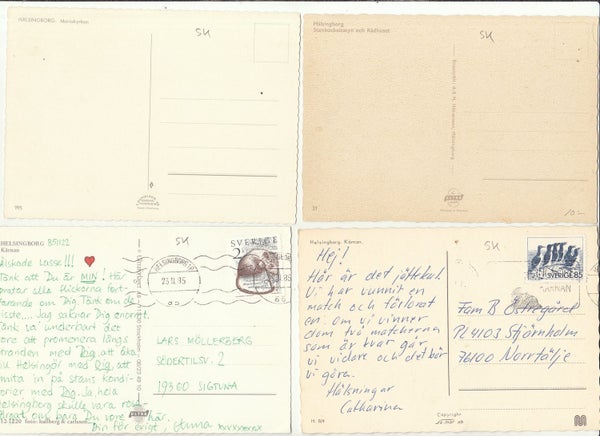 HÄLSINGBORG. Mariakyrkan
SK
195
Hälsingborg
Stenbocksstatyn och Rådhuset
SK
ULTRA
31
10:-
HELSINGBORG
Kärnan
851122
SK
SVERIGE
2
HELSINGBORG
23 11. 85
Älskade Lasse!!! ♥
Tänk att Du är MIN! Här
pratar alla flickorna fort-
farande om Dig. Tänk om de
visste... Jag saknar Dig enormt.
underbart det
vore att promenera längs
stranden med Dig, att åka
Helsingör med Dig, att
på stans kondi-
torier med Dig. Ja, hela
Helsingborg skulle vara
bara Du vore här.
Din för evigt, Anna xxxxxxxxx
foto: hallberg & carlanderi
ULTRA
LARS MÖLLERBERG
SÖDERTILSV. 2
193 00 SIGTUNA
Helsingborg. Kärnan.
SK
SVERIGE 85
Hej!
Här är det jättekul.
Vi har vunnit en
match och förlorat
en. om vi vinner
dom två matcherna
som är kvar går
vi vidare och det bör
vi göra.
Hälsningar
Catharina
Fam B Östregård
PL 4103 Stjärnholm
76100 Norrtälje
Copyright